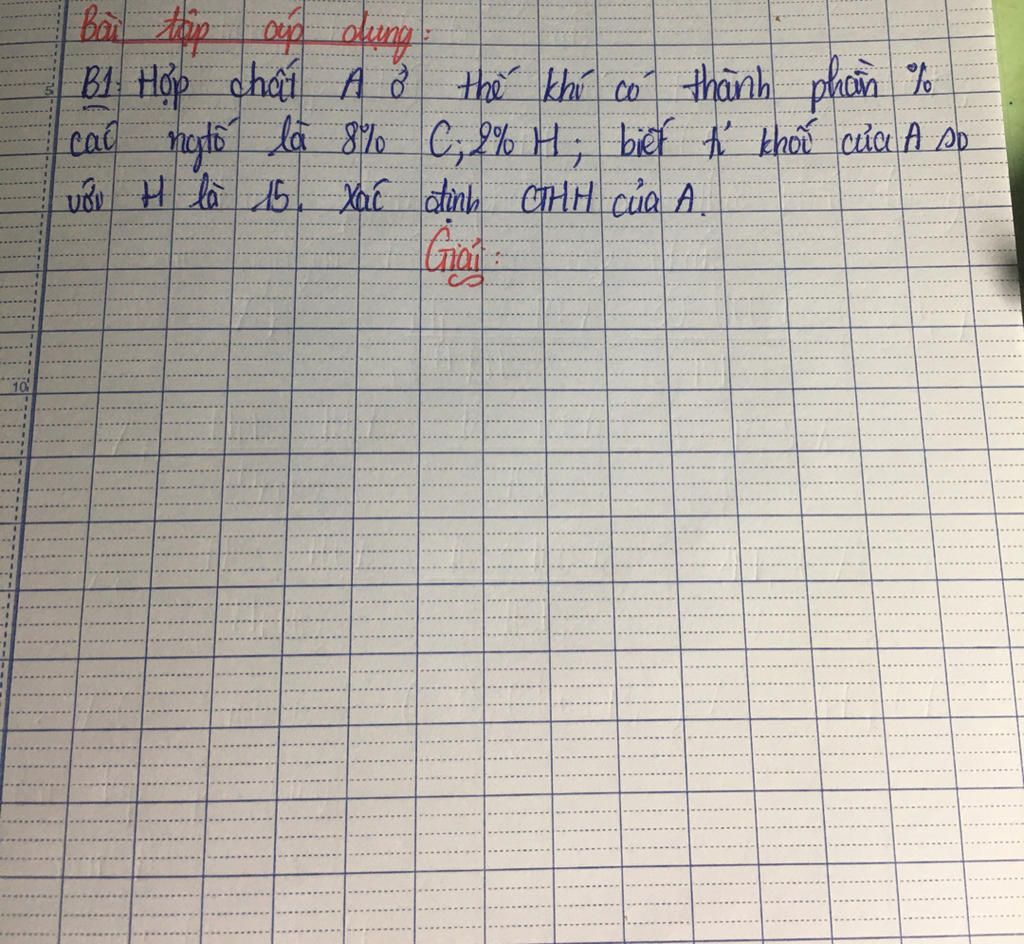 Bài tập áp dụng:
5 B1: Hợp chất A ở thế khí có thành phần %
các ngtố là 8% C; 2% H; biết tỉ khối của A so
với H là 15. Xác định CTHH của A.
Giải:
10